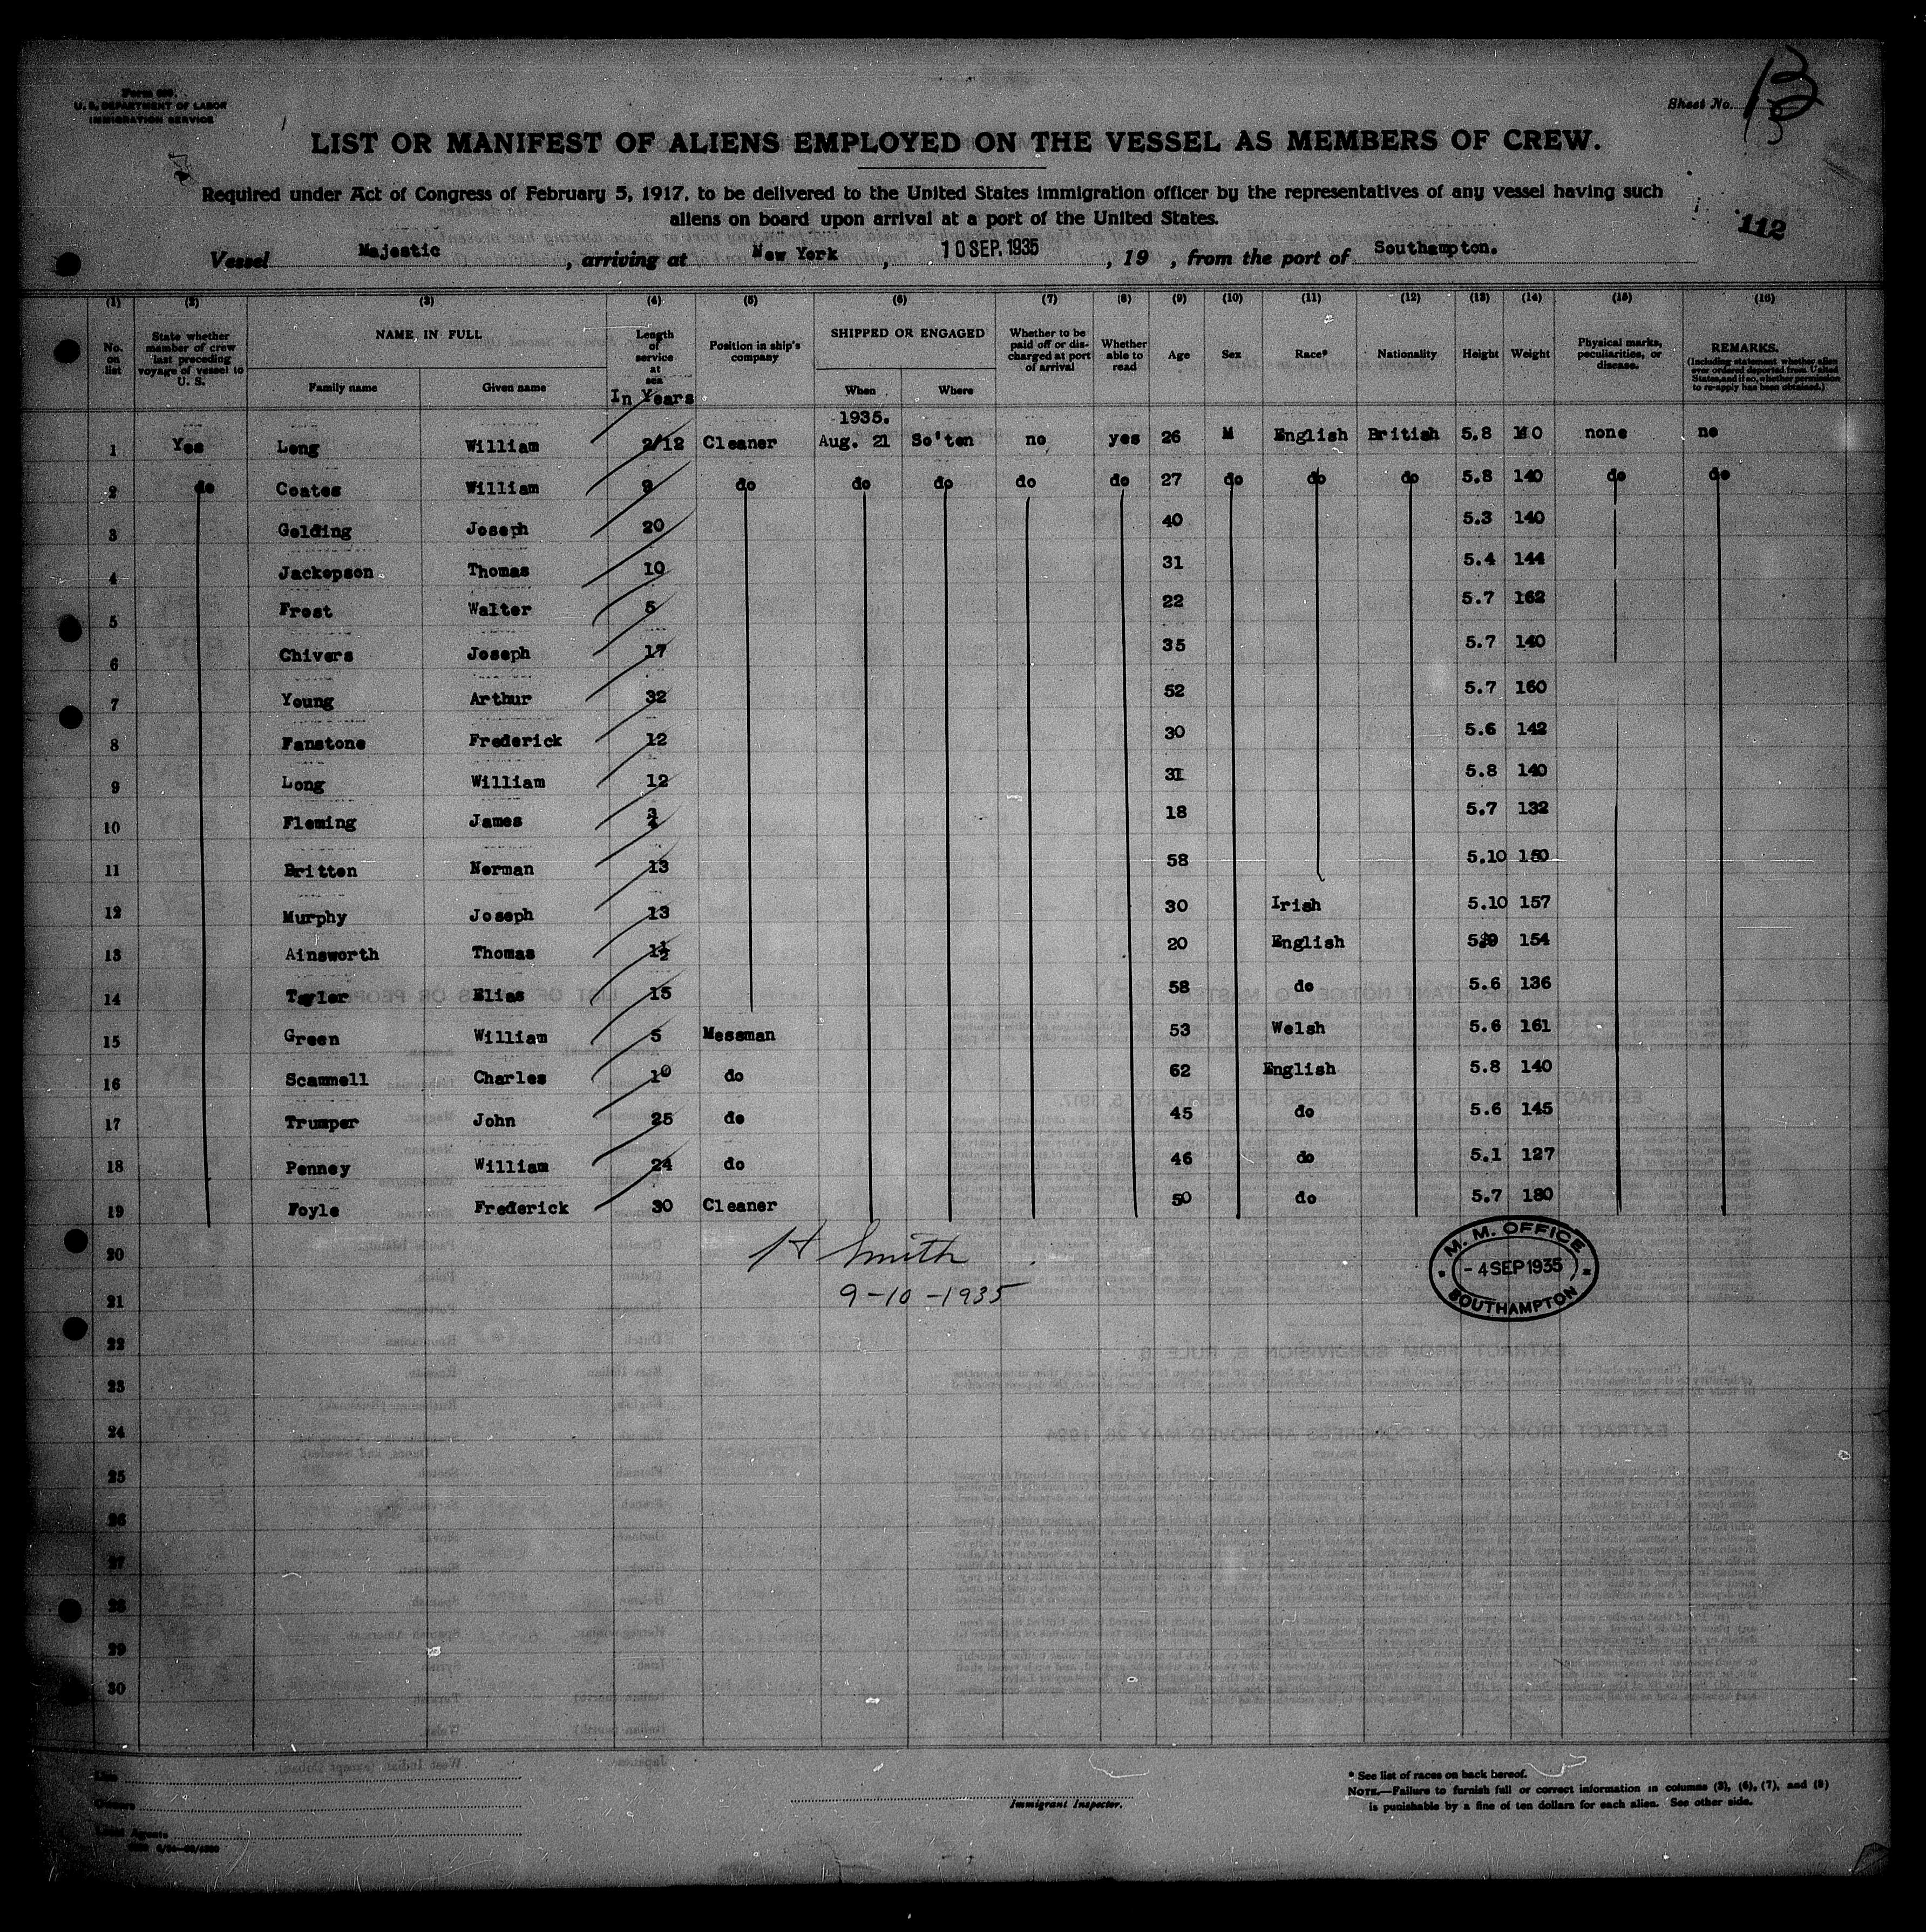 Form 680.
U. S. DEPARTMENT OF LABOR
IMMIGRATION SERVICE
Sheet No. 13
LIST OR MANIFEST OF ALIENS EMPLOYED ON THE VESSEL AS MEMBERS OF CREW.
Required under Act of Congress of February 5, 1917, to be delivered to the United States immigration officer by the representatives of any vessel having such
aliens on board upon arrival at a port of the United States.
112
Vessel Majestic, arriving at New York, 10 SEP. 1935, 19 , from the port of Southampton.
(1) (2) (3) (4) (5) (6) (7) (8) (9) (10) (11) (12) (13) (14) (15) (16)
No. on list
State whether member of crew last preceding voyage of vessel to U. S.
NAME IN FULL
Family name Given name
Length of service at sea
In Years
Position in ship's company
SHIPPED OR ENGAGED
When Where
Whether to be paid off or discharged at port of arrival
Whether able to read
Age Sex Race* Nationality Height Weight
Physical marks, peculiarities, or disease.
REMARKS.
(Including statement whether alien ever ordered deported from United States, and if so, whether permission to re-apply has been obtained.)
1935.
1 Yes Long William 2/12 Cleaner Aug. 21 So'ton no yes 26 M English British 5.8 140 none no
2 do Coates William 9 do do do do do 27 do do do 5.8 140 do do
3 Golding Joseph 20 40 5.3 140
4 Jackopson Thomas 10 31 5.4 144
5 Frost Walter 5 22 5.7 162
6 Chivers Joseph 17 35 5.7 140
7 Young Arthur 32 52 5.7 160
8 Fanstone Frederick 12 30 5.6 142
9 Long William 12 31 5.8 140
10 Fleming James 3/4 18 5.7 132
11 Britten Norman 13 58 5.10 150
12 Murphy Joseph 13 30 Irish 5.10 157
13 Ainsworth Thomas 1½ 20 English 5.9 154
14 Tayler Elias 15 58 do 5.6 136
15 Green William 5 Messman 53 Welsh 5.6 161
16 Scammell Charles 10 do 62 English 5.8 140
17 Trumper John 25 do 45 do 5.6 145
18 Penney William 24 do 46 do 5.1 127
19 Foyle Frederick 30 Cleaner 50 do 5.7 180
20
21
22
23
24
25
26
27
28
29
30
H Smith
9-10-1935
M. M. OFFICE
- 4 SEP 1935
SOUTHAMPTON
Line
Owners
Local Agents
Immigrant Inspector.
* See list of races on back hereof.
NOTE.—Failure to furnish full or correct information in columns (3), (6), (7), and (8)
is punishable by a fine of ten dollars for each alien. See other side.